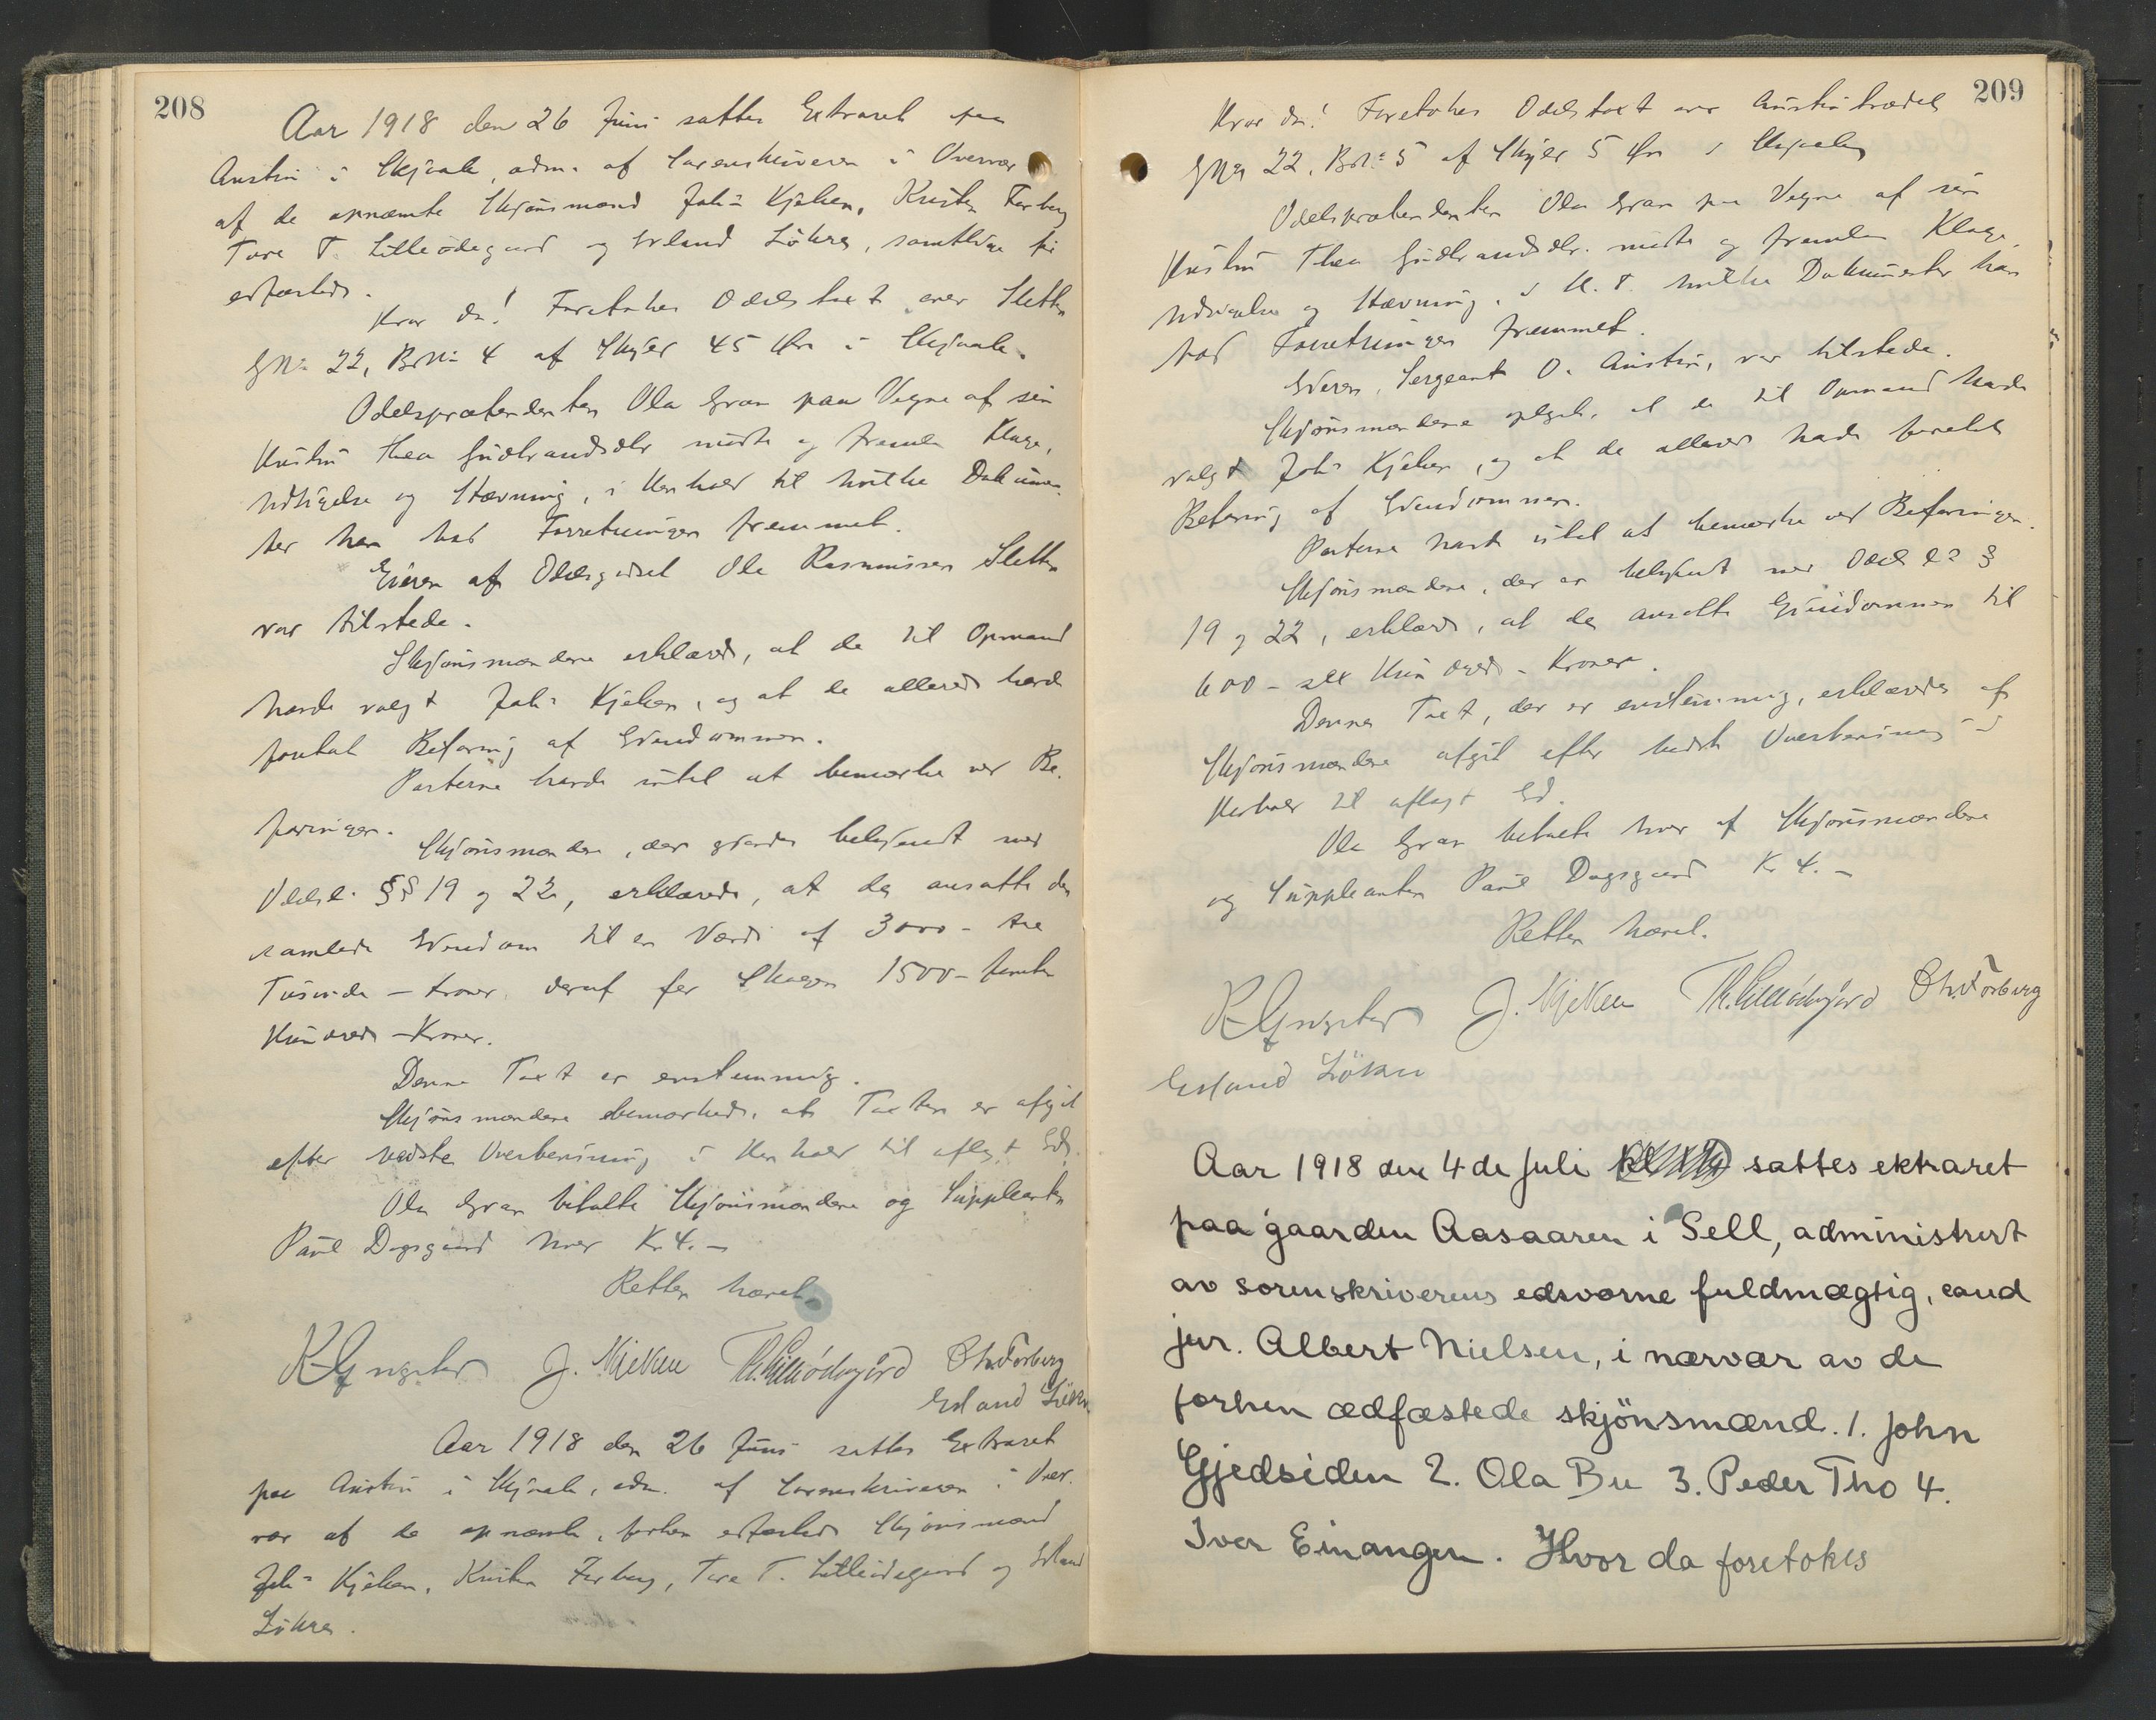 208
Aar 1918 den 26 Juni sattes Extraret paa
Austin i Skjaak, adm. af Sorenskriveren i Overvær
af de opnævnte Skjønsmænd Joh:s Kjæken, Kristen Forberg
Tore T. Lilleødegaard og Erland Løkre, samtlige før
edfæstede.
Hvor da! Foretokes Odelstaxt over Sletten
GN: 22, BrN: 4 af Skyld 45 Øre i Skjaak.
Odelsprætendenten Ola Gran paa Vegne af sin
Hustru Thea Gudbrandsdtr mødte og fremla Klage,
Udsigelse og Stævning, i Henhold til hvilke Dokumen-
ter han bad Forretningen fremmet.
Eieren af Odelsgodset Ole Rasmussen Sletten
var tilstede.
Skjønsmændene erklærede, at de til Opmand
havde valgt Joh:s Kjæken, og at de allerede havde
foretat Befaring af Eiendommen.
Parterne havde intet at bemærke ved Be-
faringen.
Skjønsmændene, der gjordes bekjendt med
Odelsl. §§ 19 og 22, erklærede, at de ansatte den
samlede Eiendom til en Værdi af 3000 - tre
Tusinde - Kroner, deraf for Skogen 1500 - femten
Hundrede - Kroner.
Denne Taxt er enstemmig.
Skjønsmændene bemærkede, at Taxten er afgit
efter bedste Overbevisning i Henhold til aflagt Ed.
Ola Gran betalte Skjønsmændene og Suppleanten
Paul Dagsgaard hver Kr. 4.-
Retten hævet.
J. Kjæken Th. Lilleødegård Chr. Forberg
Erland Løkre
Aar 1918 den 26 Juni sattes Extraret
paa Austin i Skjaak, adm. af Sorenskriveren i Over-
vær af de opnævnte, forhen edfæstede Skjønsmænd
Joh:s Kjæken, Kristen Forberg, Tore T. Lilleødegaard og Erland
Løkre.
209
Hvor da! Foretokes Odelstaxt over Austinbrædet
GN: 22, BrN: 5 af Skyld 5 Øre i Skjaak
Odelsprætendenten Ola Gran paa Vegne af sin
Hustru Thea Gudbrandsdtr. mødte og fremla Klage,
Udsigelse og Stævning, i H. T. hvilke Dokumenter han
bad Forretningen fremmet.
Eieren, Sergeant O. Austin, var tilstede.
Skjønsmændene oplyste, at de til Opmand havde
valgt Joh:s Kjæken, og at de allerede havde foretat
Befaring af Eiendommen.
Parterne havde intet at bemærke ved Befaringen.
Skjønsmændene, der er bekjendt med Odelsl. §
19 og 22, erklærede, at de ansatte Eiendommen til
600 - sex Hundrede - Kroner.
Denne Taxt, der er enstemmig, erklæredes af
Skjønsmændene afgit efter bedste Overbevisning i
Henhold til aflagt Ed.
Ola Gran betalte hver af Skjønsmændene
og Suppleanten Paul Dagsgaard Kr. 4.-
Retten hævet.
J. Kjæken Th. Lilleødegård Chr. Forberg
Erland Løkre
Aar 1918 den 4de Juli sattes ektraret
paa gaarden Aasaaren i Sell, administrert
av sorenskriverens edsvorne fuldmægtig, cand
jur. Albert Nielsen, i nærvær av de
forhen ædfæstede skjönsmænd. 1. John
Gjedsiden 2. Ola Bu 3. Peder Tho 4.
Iver Einangen. Hvor da foretokes